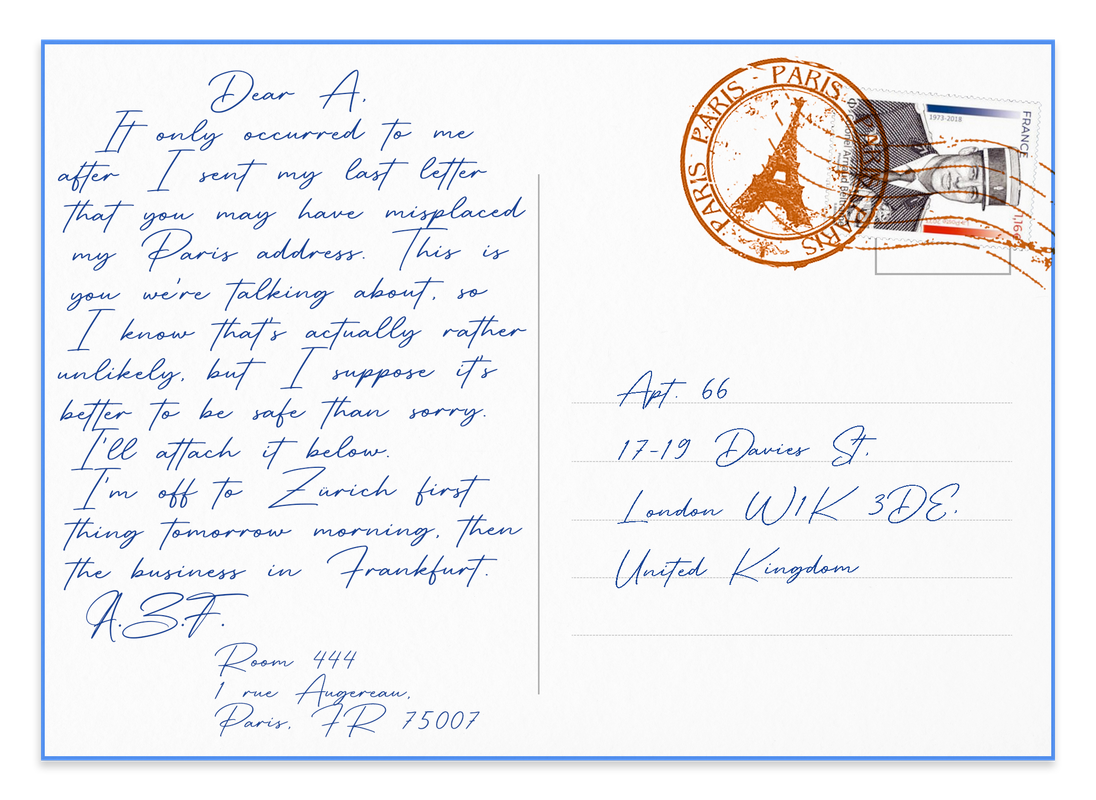 Dear A,
It only occurred to me
after I sent my last letter
that you may have misplaced
my Paris address. This is
you we're talking about, so
I know that's actually rather
unlikely, but I suppose it's
better to be safe than sorry.
I'll attach it below.
I'm off to Zürich first
thing tomorrow morning, then
the business in Frankfurt.
A.Z.F.
Room 444
1 rue Augereau,
Paris, FR 75007
PARIS - PARIS - PARIS - PARIS - PARIS
1973-2018
FRANCE
1,16€
Apt. 66
17-19 Davies St.
London W1K 3DE.
United Kingdom